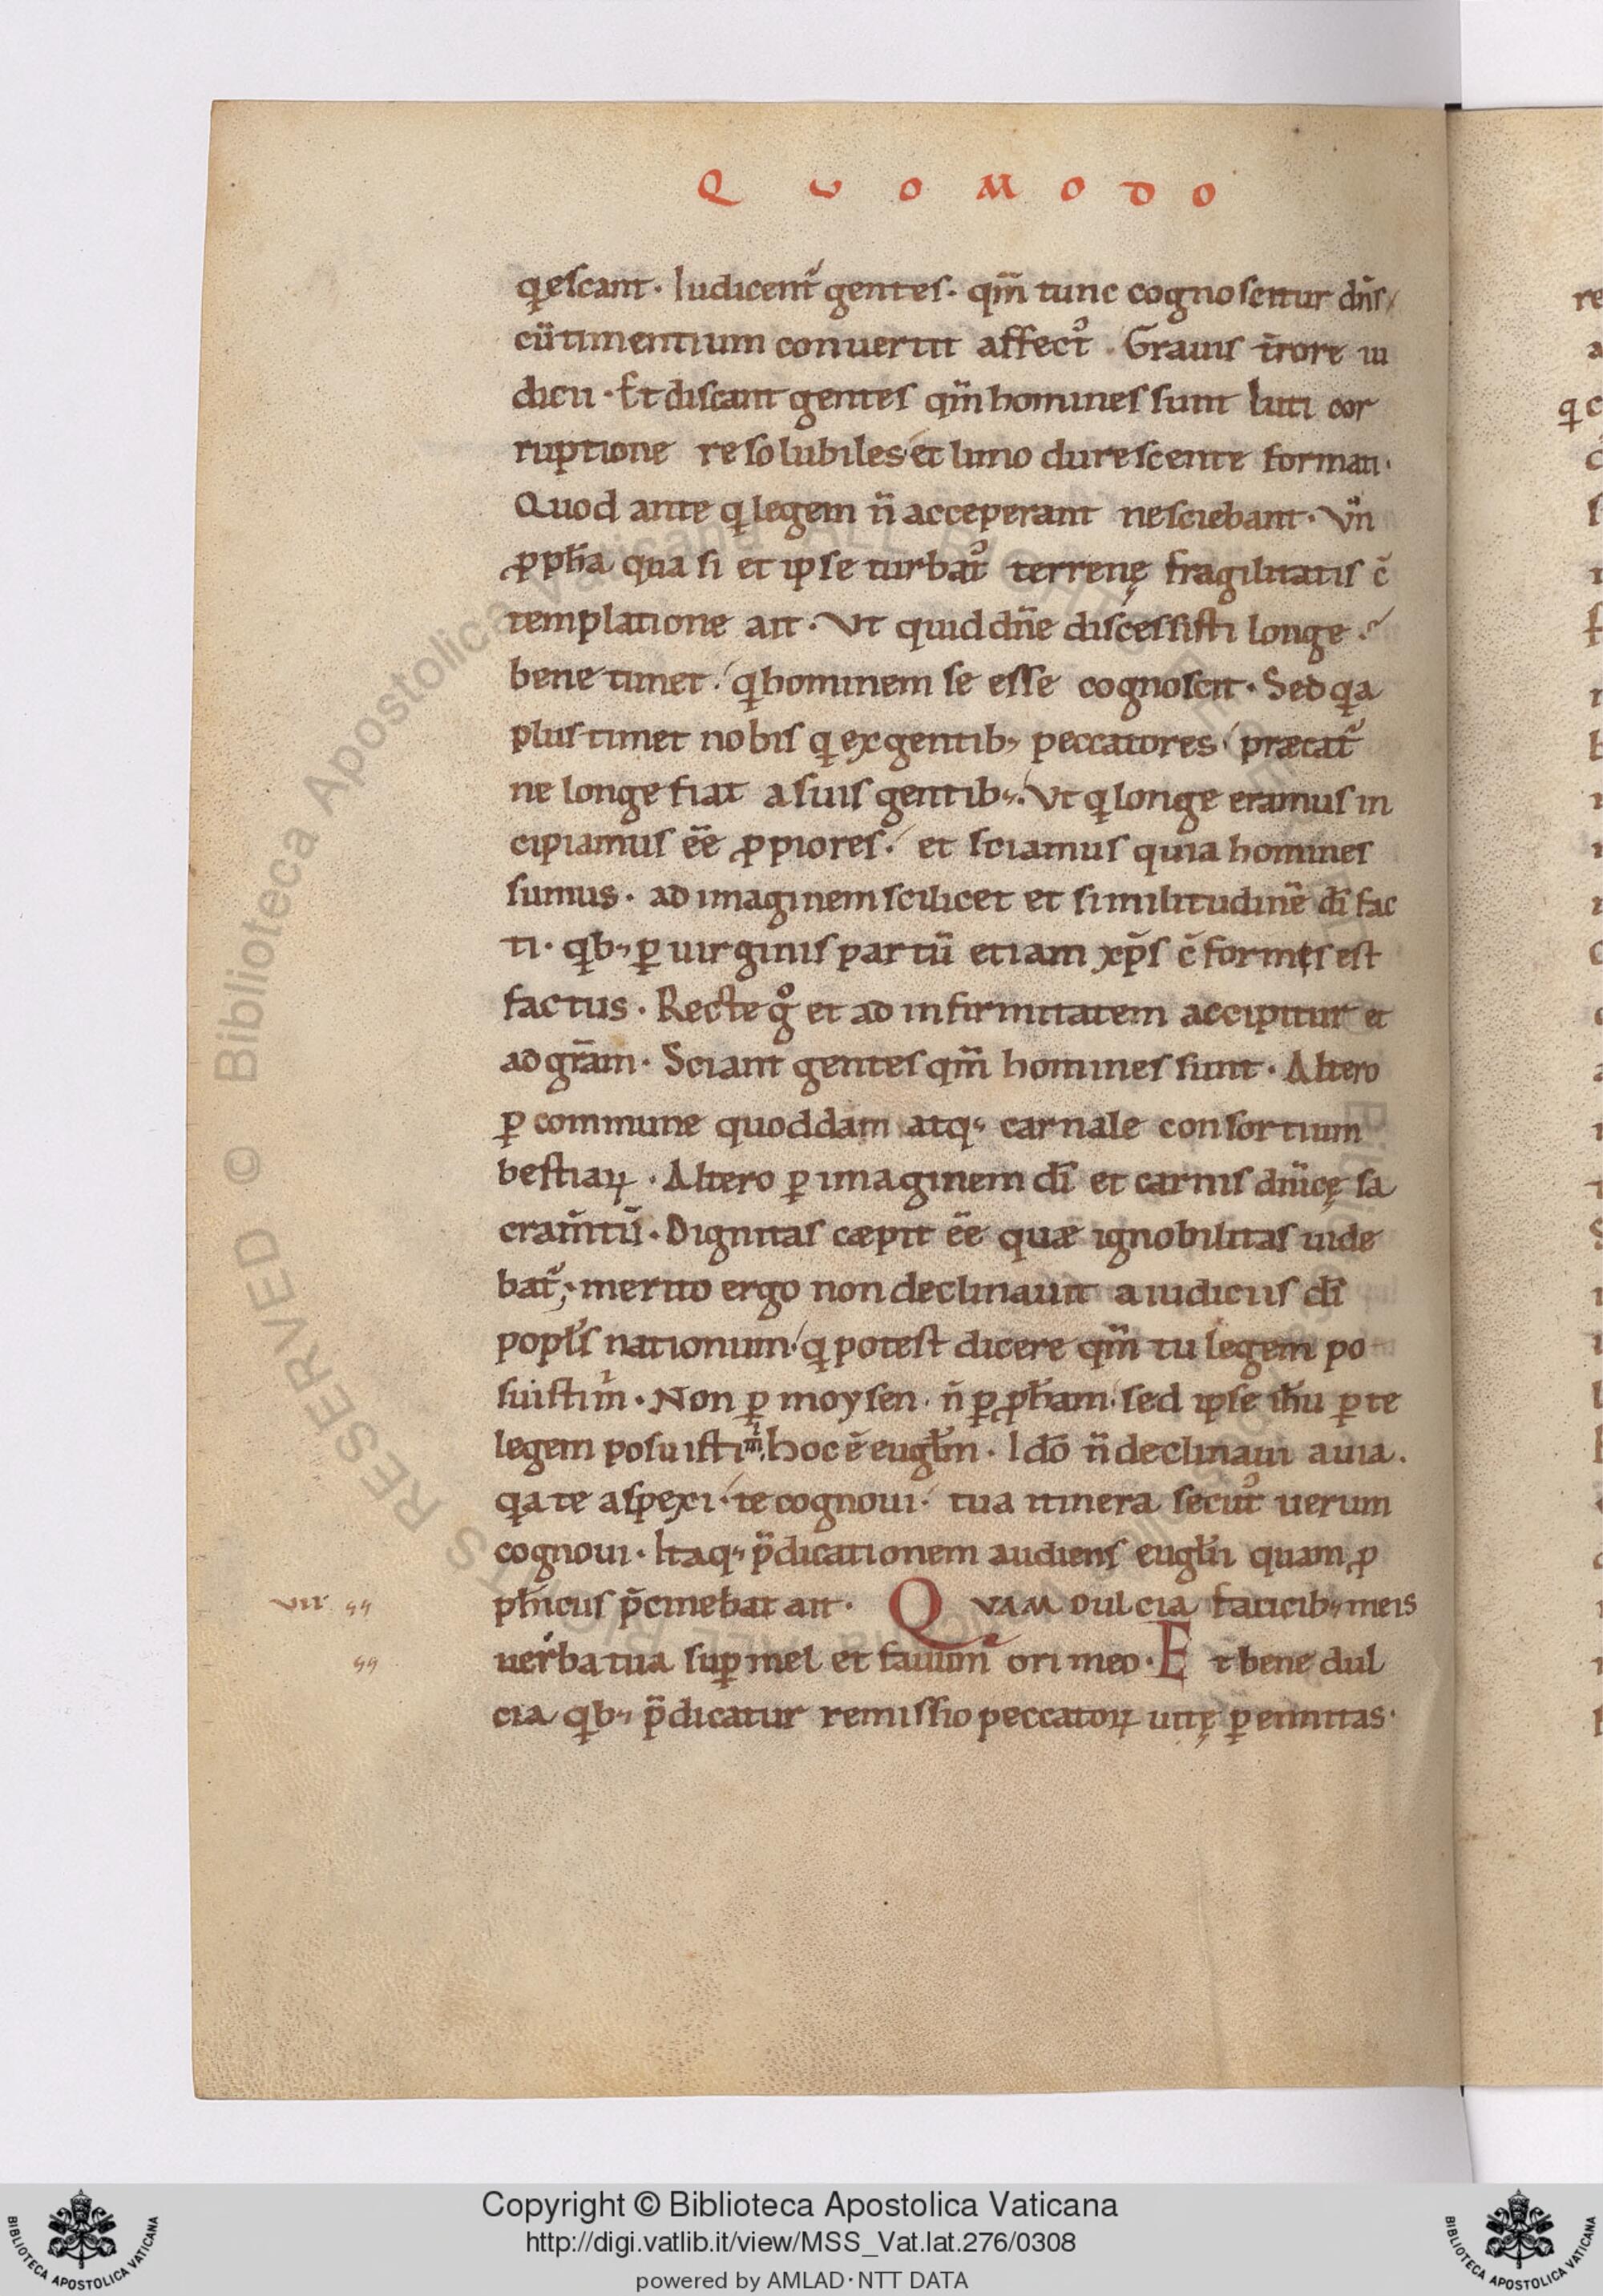 Q U O M O D O
q̣escant. Iudicent᷑ gentes. qm̅ tunc cognoscitur dn̅s
cu̅ timentium conuertit affect᷒. Grauis t̅rore iu
dicii. Et discant gentes qm̅ homines sunt luti cor
ruptione resolubiles et limo durescente formati.
Quod ante q legem n̅ acceperant nesciebant. Vn̅
ꝓph̅a quasi et ipse turbat᷒ terrenę fragilitatis c̅
templatione ait. Vt quid dn̅e discessisti longe.
bene timet. q hominem se esse cognoscit. Sed qa
plus timet nobis q ex gentib; peccatores præcat᷑
ne longe fiat a suis gentib;. Vt q longe eramus in
cipiamus ee̅ ꝓpiores. et sciamus quia homines
sumus. ad imaginem scilicet et similitudine̅ di̅ fac
ti. qb; ꝑ uirginis partu̅ etiam xp̅s c̅formis est
factus. Recte gͦ et ad infirmitatem accipitur et
ad gr̅am. Sciant gentes qm̅ homines sunt. Altero
ꝑ commune quoddam atq; carnale consortium
bestiaꝝ. Altero ꝑ imaginem di̅ et carnis dn̅icę sa
cram̅tu̅. Dignitas cæpit ee̅ quæ ignobilitas uide
bat᷑; merito ergo non declinauit a iudiciis di̅
popl̅s nationum. q potest dicere qm̅ tu legem po
suisti m̅. Non ꝑ moysen. n̅ ꝑ ꝓph̅am. sed ipse ih̅u ꝑ te
legem posuisti m̅. hoc e̅ eugl̅m. Ido̅ n̅ declinaui a uia.
qa te aspexi. te cognoui. tua itinera secut᷒ uerum
cognoui. Itaq; p̅dicationem audiens eugl̅ii quam ꝓ
ph̅icus p̅cinebat ait. QVAM dulcia faucib; meis
uerba tua suꝑ mel et fauum ori meo. Et bene dul
cia qb; p̅dicatur remissio peccatoꝝ uitę ꝑennitas.
VII
Copyright © Biblioteca Apostolica Vaticana
http://digi.vatlib.it/view/MSS_Vat.lat.276/0308
powered by AMLAD·NTT DATA
BIBLIOTECA APOSTOLICA VATICANA
BIBLIOTECA APOSTOLICA VATICANA